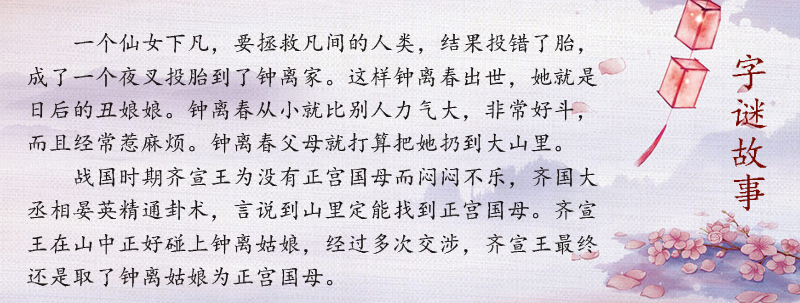 字谜故事
一个仙女下凡，要拯救凡间的人类，结果投错了胎，
成了一个夜叉投胎到了钟离家。这样钟离春出世，她就是
日后的丑娘娘。钟离春从小就比别人力气大，非常好斗，
而且经常惹麻烦。钟离春父母就打算把她扔到大山里。
战国时期齐宣王为没有正宫国母而闷闷不乐，齐国大
丞相晏英精通卦术，言说到山里定能找到正宫国母。齐宣
王在山中正好碰上钟离姑娘，经过多次交涉，齐宣王最终
还是取了钟离姑娘为正宫国母。